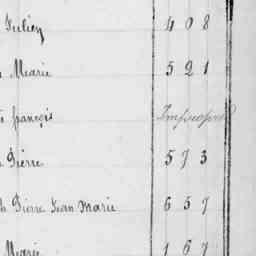 Julien 408
Marie 521
françois
Pierre 573
Pierre Jean Marie 657
Marie 167